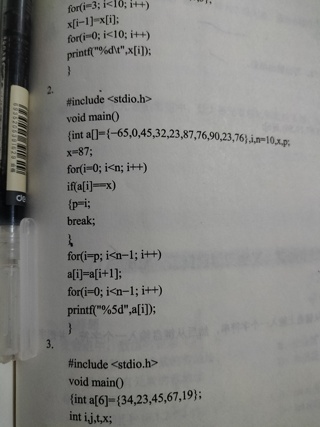 for(i=3; i<10; i++)
x[i-1]=x[i];
for(i=0; i<10; i++)
printf("%d\t",x[i]);
}
2.
#include <stdio.h>
void main()
{int a[]={−65,0,45,32,23,87,76,90,23,76},i,n=10,x,p;
x=87;
for(i=0; i<n; i++)
if(a[i]==x)
{p=i;
break;
}
for(i=p; i<n−1; i++)
a[i]=a[i+1];
for(i=0; i<n−1; i++)
printf("%5d",a[i]);
}
3.
#include <stdio.h>
void main()
{int a[6]={34,23,45,67,19};
int i,j,t,x;